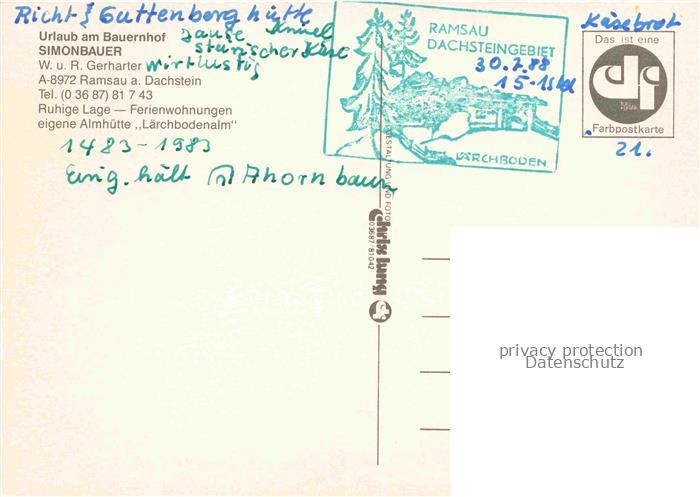 Richt. Guttenberghütte
Urlaub am Bauernhof
SIMONBAUER
W. u. R. Gerharter
A-8972 Ramsau a. Dachstein
Tel. (0 36 87) 81 7 43
Ruhige Lage — Ferienwohnungen
eigene Almhütte ,,Lärchbodenalm"
Jause
steirischer Käse
wirtlustig
1483-1983
Eing. hält Ahornbaum
RAMSAU
DACHSTEINGEBIET
30.7.88
LÄRCHBODEN
Käsebrot
Das ist eine
Farbpostkarte
21.
GESTALTUNG UND FOTO
christ lung
03687/81042
privacy protection
Datenschutz